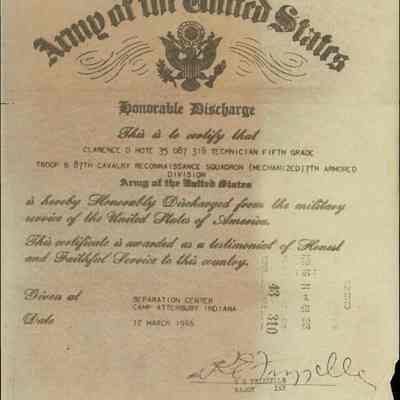 Army of the United States
Honorable Discharge
This is to certify that
CLARENCE D HOTE 35 087 316 TECHNICIAN FIFTH GRADE
TROOP B 87TH CAVALRY RECONNAISSANCE SQUADRON (MECHANIZED) 7TH ARMORED
DIVISION
Army of the United States
is hereby Honorably Discharged from the military
service of the United States of America.
This certificate is awarded as a testimonial of Honest
and Faithful Service to this country.
Given at SEPARATION CENTER
CAMP ATTERBURY INDIANA
Date 12 MARCH
43 310
MAJOR